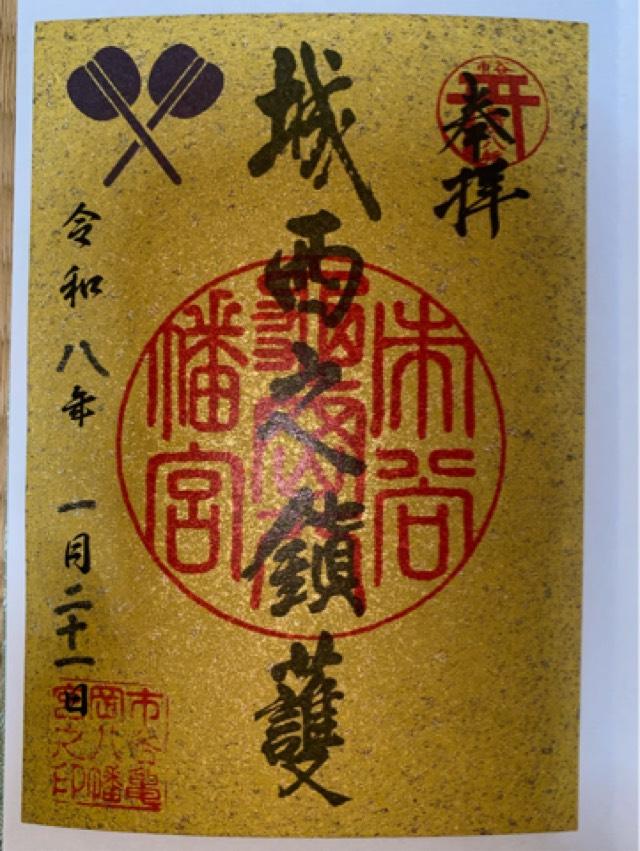 市谷
奉拝
城西之鎮護
市谷
幡宮
令和八年 一月二十一日
市谷亀
岡八幡
宮之印